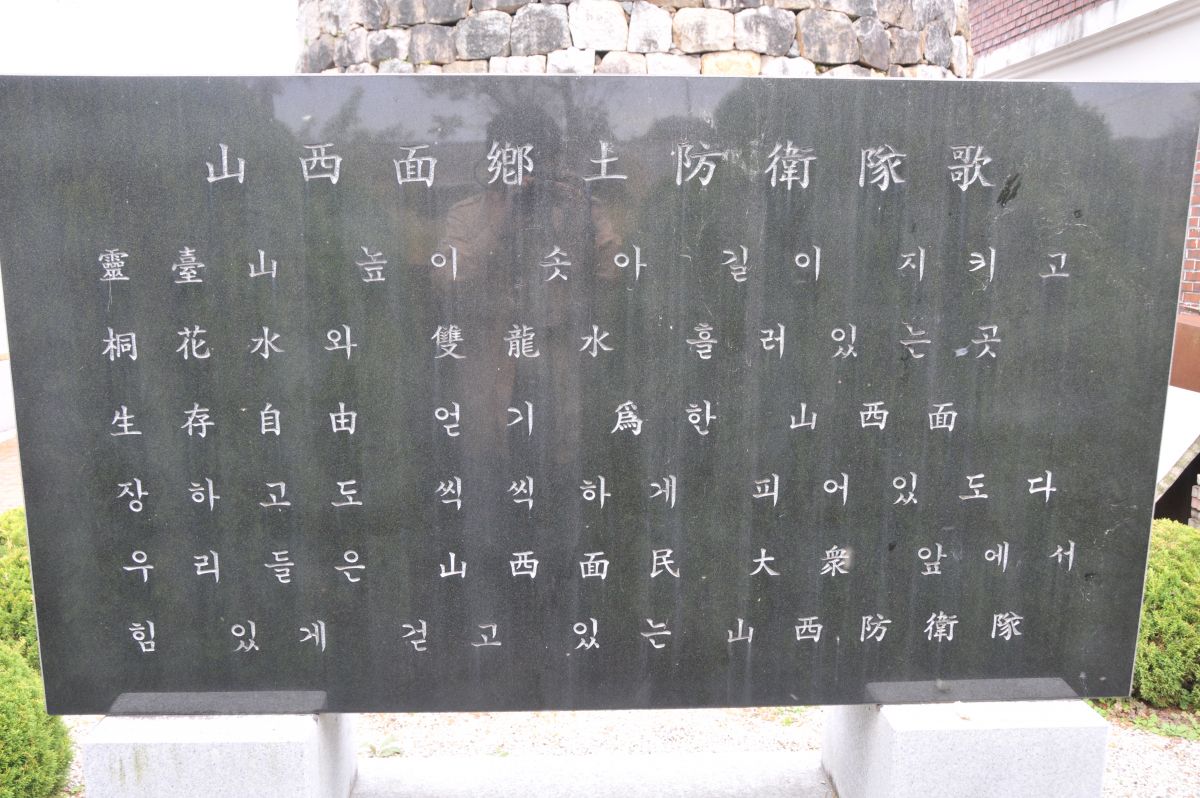 山西面鄕土防衛隊歌
靈臺山 높이 솟아 길이 지키고
桐花水와 雙龍水 흘러있는곳
生存自由 얻기 爲한 山西面
장하고도 씩씩하게 피어있도다
우리들은 山西面民 大衆 앞에서
힘 있게 걷고 있는 山西防衛隊